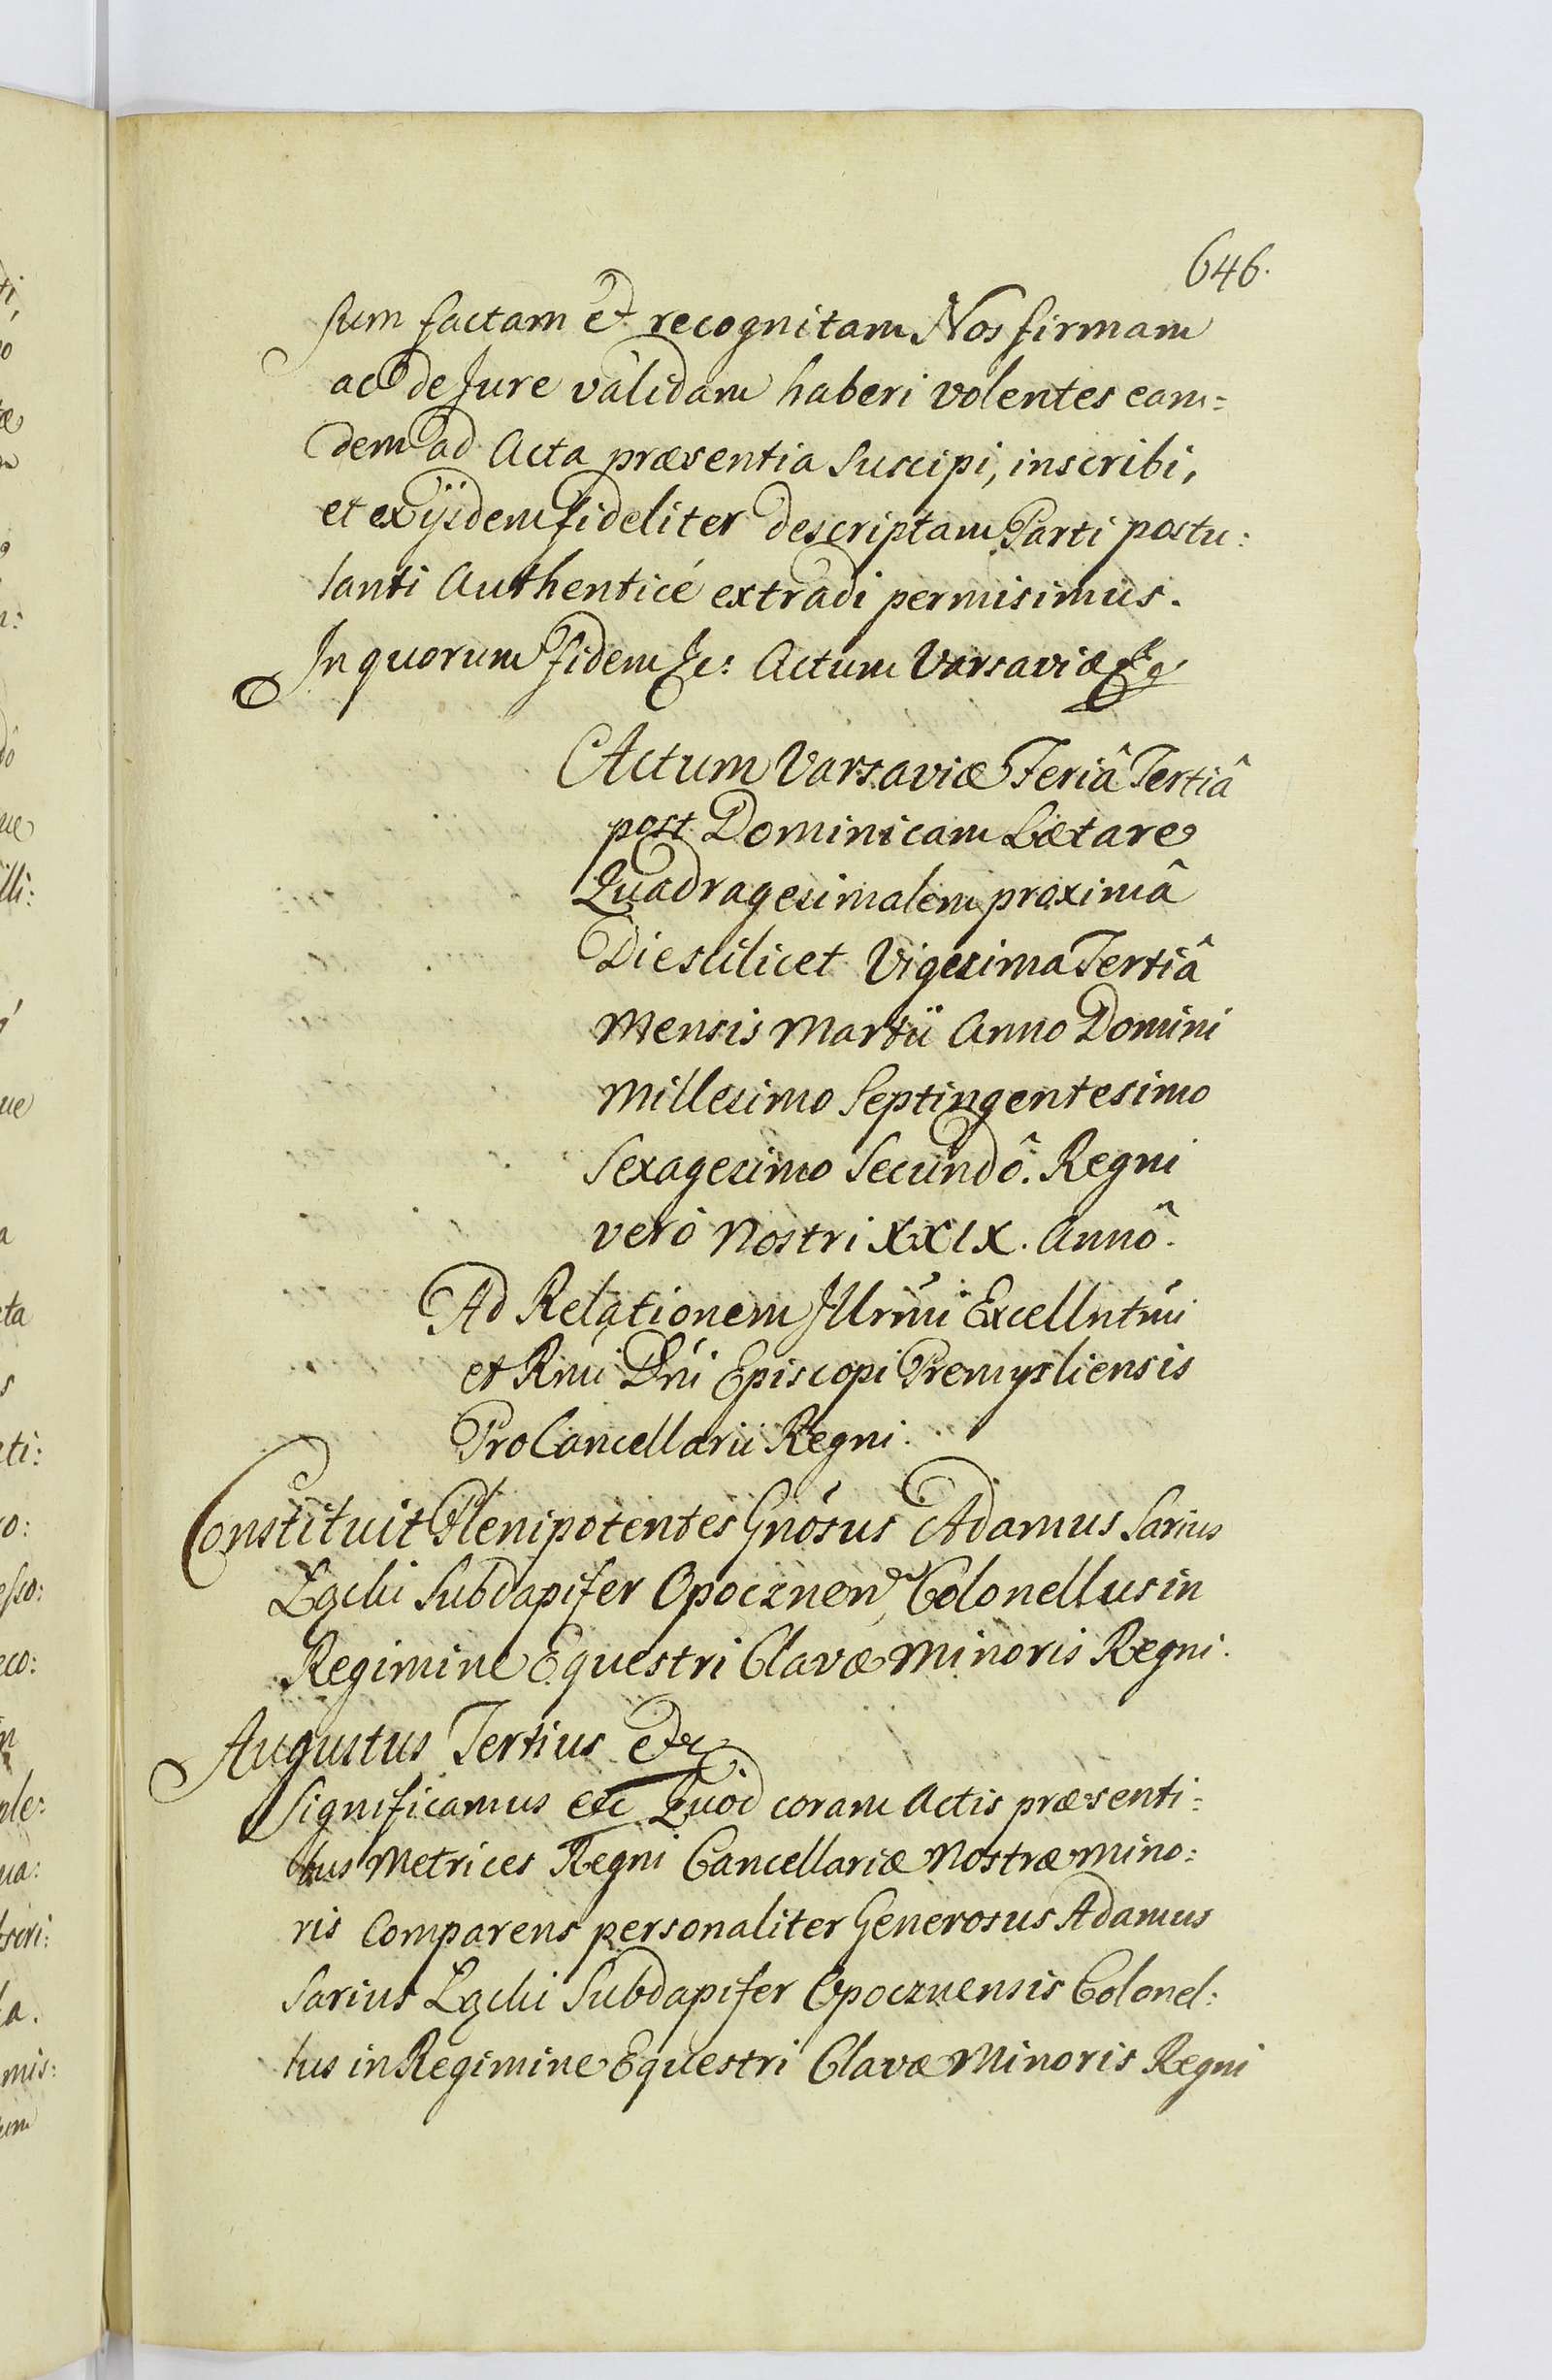 646.
sum factam et recognitam Nos firmam
ac de Jure validam haberi volentes eam=
dem ad Acta præsentia Suscipi, inscribi,
et ex ijsdem fideliter descriptam Parti postu:
lanti Authenticé extradi permisimus.
In quorum fidem &c: Actum Varsaviæ &c
Actum Varsaviæ Feriâ Tertiâ
post Dominicam Lætare
Quadragesimalem proximâ
Die scilicet Vigesima Tertiâ
Mensis Martii Anno Domini
Millesimo Septingentesimo
Sexagesimo Secundô. Regni
verò Nostri XXIX. Annô.
Ad Relationem Illrmi Excellntmi
et Rmi Dni Episcopi Premysliensis
ProCancellarii Regni.
Constituit Plenipotentes Gnosus Adamus Sarius
Łącki Subdapifer Opocznen, Colonellus in
Regimine Equestri Clavæ Minoris Regni.
Augustus Tertius etc
Significamus etc Quod coram Actis præsenti=
bus Metrices Regni Cancellariæ Nostræ Mino:
ris Comparens personaliter Generosus Adamus
Sarius Łącki Subdapifer Opocznensis Colonel:
lus in Regimine Equestri Clavæ Minoris Regni